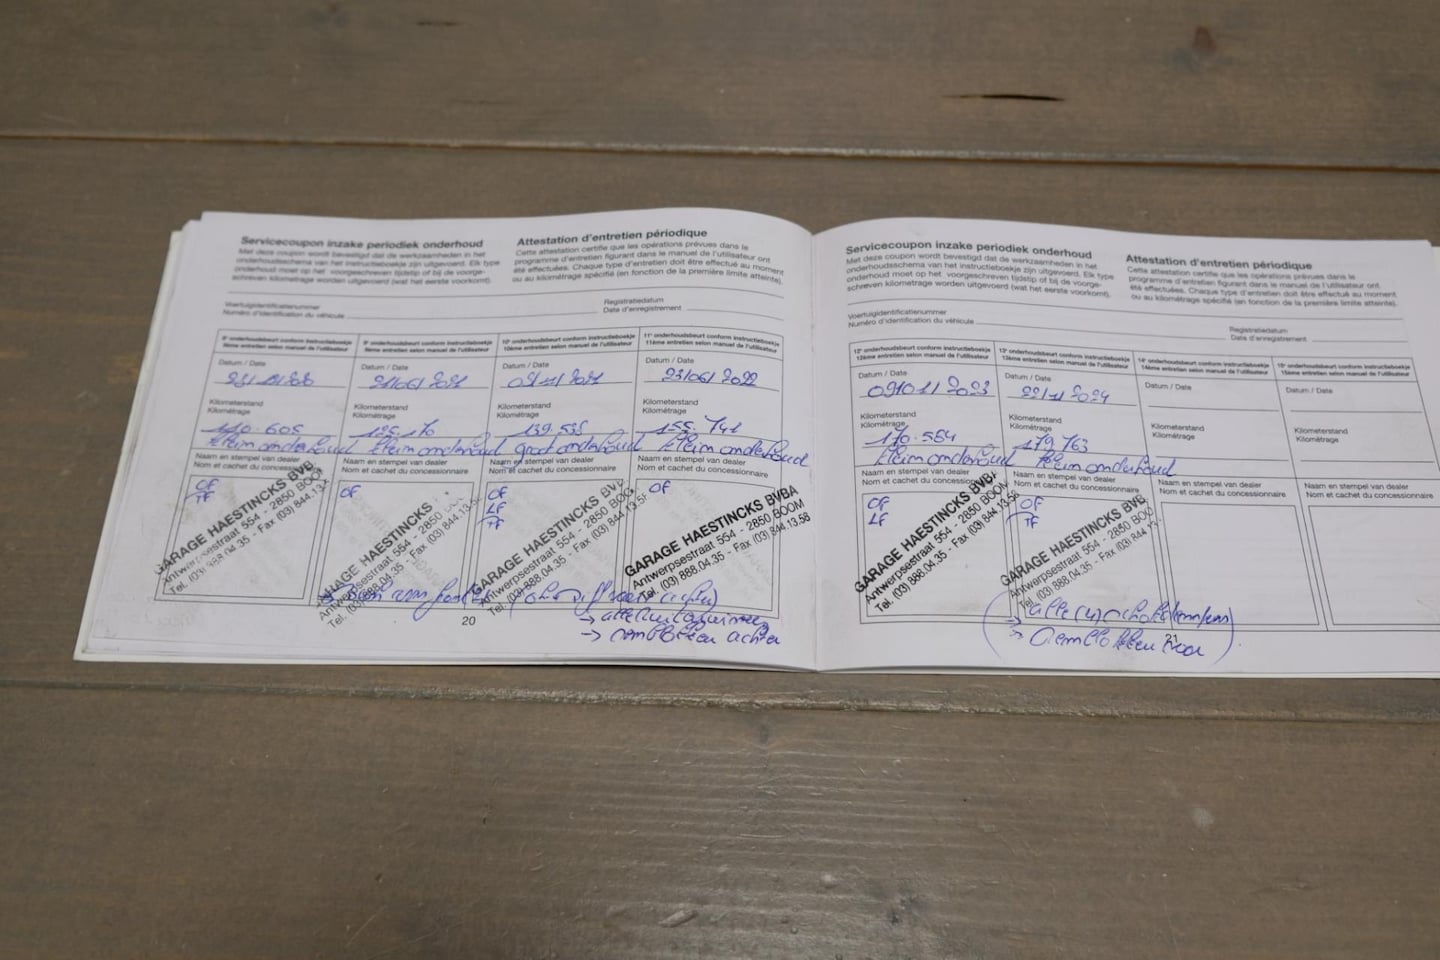 Servicecoupon inzake periodiek onderhoud
Met deze coupon wordt bevestigd dat de werkzaamheden in het
onderhoudsschema van het instructieboekje zijn uitgevoerd. Elk type
onderhoud moet op het voorgeschreven tijdstip of bij de voorge-
schreven kilometrage worden uitgevoerd (wat het eerste voorkomt).
Attestation d'entretien périodique
Cette attestation certifie que les opérations prévues dans le
programme d'entretien figurant dans le manuel de l'utilisateur ont
été effectuées. Chaque type d'entretien doit être effectué au moment
ou au kilométrage spécifié (en fonction de la première limite atteinte).
Voertuigidentificatienummer
Numéro d'identification du véhicule
Registratiedatum
Date d'enregistrement
8e onderhoudsbeurt conform instructieboekje
8ème entretien selon manuel de l'utilisateur
9e onderhoudsbeurt conform instructieboekje
9ème entretien selon manuel de l'utilisateur
10e onderhoudsbeurt conform instructieboekje
10ème entretien selon manuel de l'utilisateur
11e onderhoudsbeurt conform instructieboekje
11ème entretien selon manuel de l'utilisateur
Datum / Date
Datum / Date
21/06/2021
Datum / Date
Datum / Date
23/06/2022
Kilometerstand
Kilométrage
110.605
Kilometerstand
Kilométrage
125.170
Kilometerstand
Kilométrage
139.535
Kilometerstand
Kilométrage
155.741
klein onderhoud
klein onderhoud
groot onderhoud
klein onderhoud
Naam en stempel van dealer
Nom et cachet du concessionnaire
Naam en stempel van dealer
Nom et cachet du concessionnaire
Naam en stempel van dealer
Nom et cachet du concessionnaire
Naam en stempel van dealer
Nom et cachet du concessionnaire
OF
TF
GARAGE HAESTINCKS BVB
Antwerpsestraat 554 - 2850 BOOM
Tel. (03) 888.04.35 - Fax (03) 844.13
OF
HAESTINCKS
Antwerpsestraat 554 - 2850
Fax (03) 844.13
OF
LF
GARAGE HAESTINCKS BV
Antwerpsestraat 554 - 2850 BOO
Tel. (03) 888.04.35 - Fax (03) 844.13.5
OF
GARAGE HAESTINCKS BVBA
Antwerpsestraat 554 - 2850 BOOM
Tel. (03) 888.04.35 - Fax (03) 844.13.58
20
Servicecoupon inzake periodiek onderhoud
Met deze coupon wordt bevestigd dat de werkzaamheden in het
onderhoudsschema van het instructieboekje zijn uitgevoerd. Elk type
onderhoud moet op het voorgeschreven tijdstip of bij de voorge-
schreven kilometrage worden uitgevoerd (wat het eerste voorkomt).
Attestation d'entretien périodique
Cette attestation certifie que les opérations prévues dans le
programme d'entretien figurant dans le manuel de l'utilisateur ont
été effectuées. Chaque type d'entretien doit être effectué au moment
ou au kilométrage spécifié (en fonction de la première limite atteinte).
Voertuigidentificatienummer
Numéro d'identification du véhicule
Registratiedatum
Date d'enregistrement
12e onderhoudsbeurt conform instructieboekje
12ème entretien selon manuel de l'utilisateur
13e onderhoudsbeurt conform instructieboekje
13ème entretien selon manuel de l'utilisateur
14e onderhoudsbeurt conform instructieboekje
14ème entretien selon manuel de l'utilisateur
15e onderhoudsbeurt conform instructieboekje
15ème entretien selon manuel de l'utilisateur
Datum / Date
09/01/2023
Datum / Date
Datum / Date
Datum / Date
Kilometerstand
Kilométrage
170.554
Kilometerstand
Kilométrage
179.763
Kilometerstand
Kilométrage
Kilometerstand
Kilométrage
klein onderhoud
klein onderhoud
Naam en stempel van dealer
Nom et cachet du concessionnaire
Naam en stempel van dealer
Nom et cachet du concessionnaire
Naam en stempel van dealer
Nom et cachet du concessionnaire
Naam en stempel van dealer
Nom et cachet du concessionnaire
OF
LF
GARAGE HAESTINCKS BVBA
Antwerpsestraat 554 - 2850 BOOM
Tel. (03) 888.04.35 - Fax (03) 844.13.58
OF
TF
GARAGE HAESTINCKS BVB
Antwerpsestraat 554 - 2850 BOO
Tel. (03) 888.04.35 - Fax (03) 844.13
21